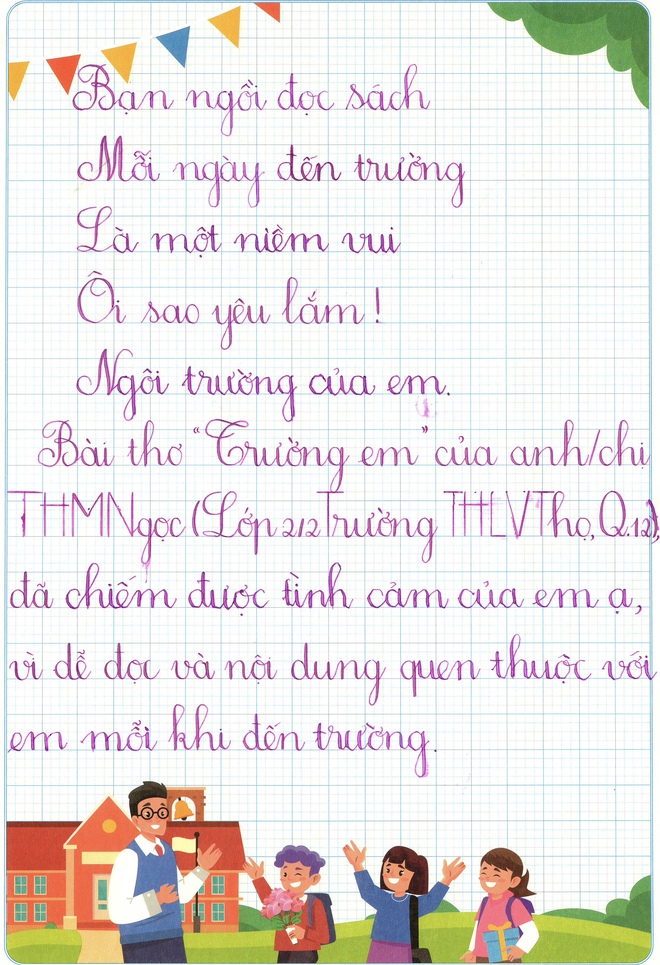 Bạn ngồi đọc sách
Mỗi ngày đến trường
Là một niềm vui
Ôi sao yêu lắm!
Ngôi trường của em.
Bài thơ "Trường em" của anh/chị
THMNgọc (Lớp 2/2 Trường THLVThọ, Q.12),
đã chiếm được tình cảm của em ạ,
vì dễ đọc và nội dung quen thuộc với
em mỗi khi đến trường.